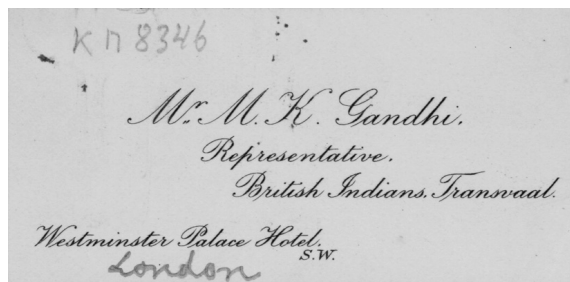 КП 8346
Mr. M. K. Gandhi.
Representative.
British Indians. Transvaal.
Westminster Palace Hotel.
S.W.
London